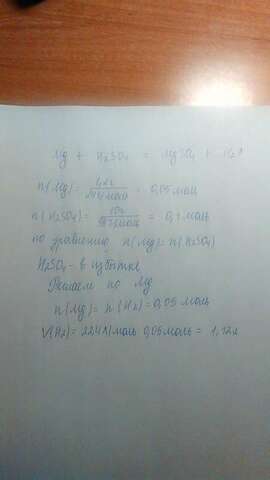 Mg + H₂SO₄ = MgSO₄ + H₂↑
n(Mg) = 1,2г / 24г/моль = 0,05 моль
n(H₂SO₄) = 10г / 98г/моль = 0,1 моль
по уравнению n(Mg) = n(H₂SO₄)
H₂SO₄ - в избытке
Решаем по Mg
n(Mg) = n(H₂) = 0,05 моль
V(H₂) = 22,4 л/моль 0,05 моль = 1,12л